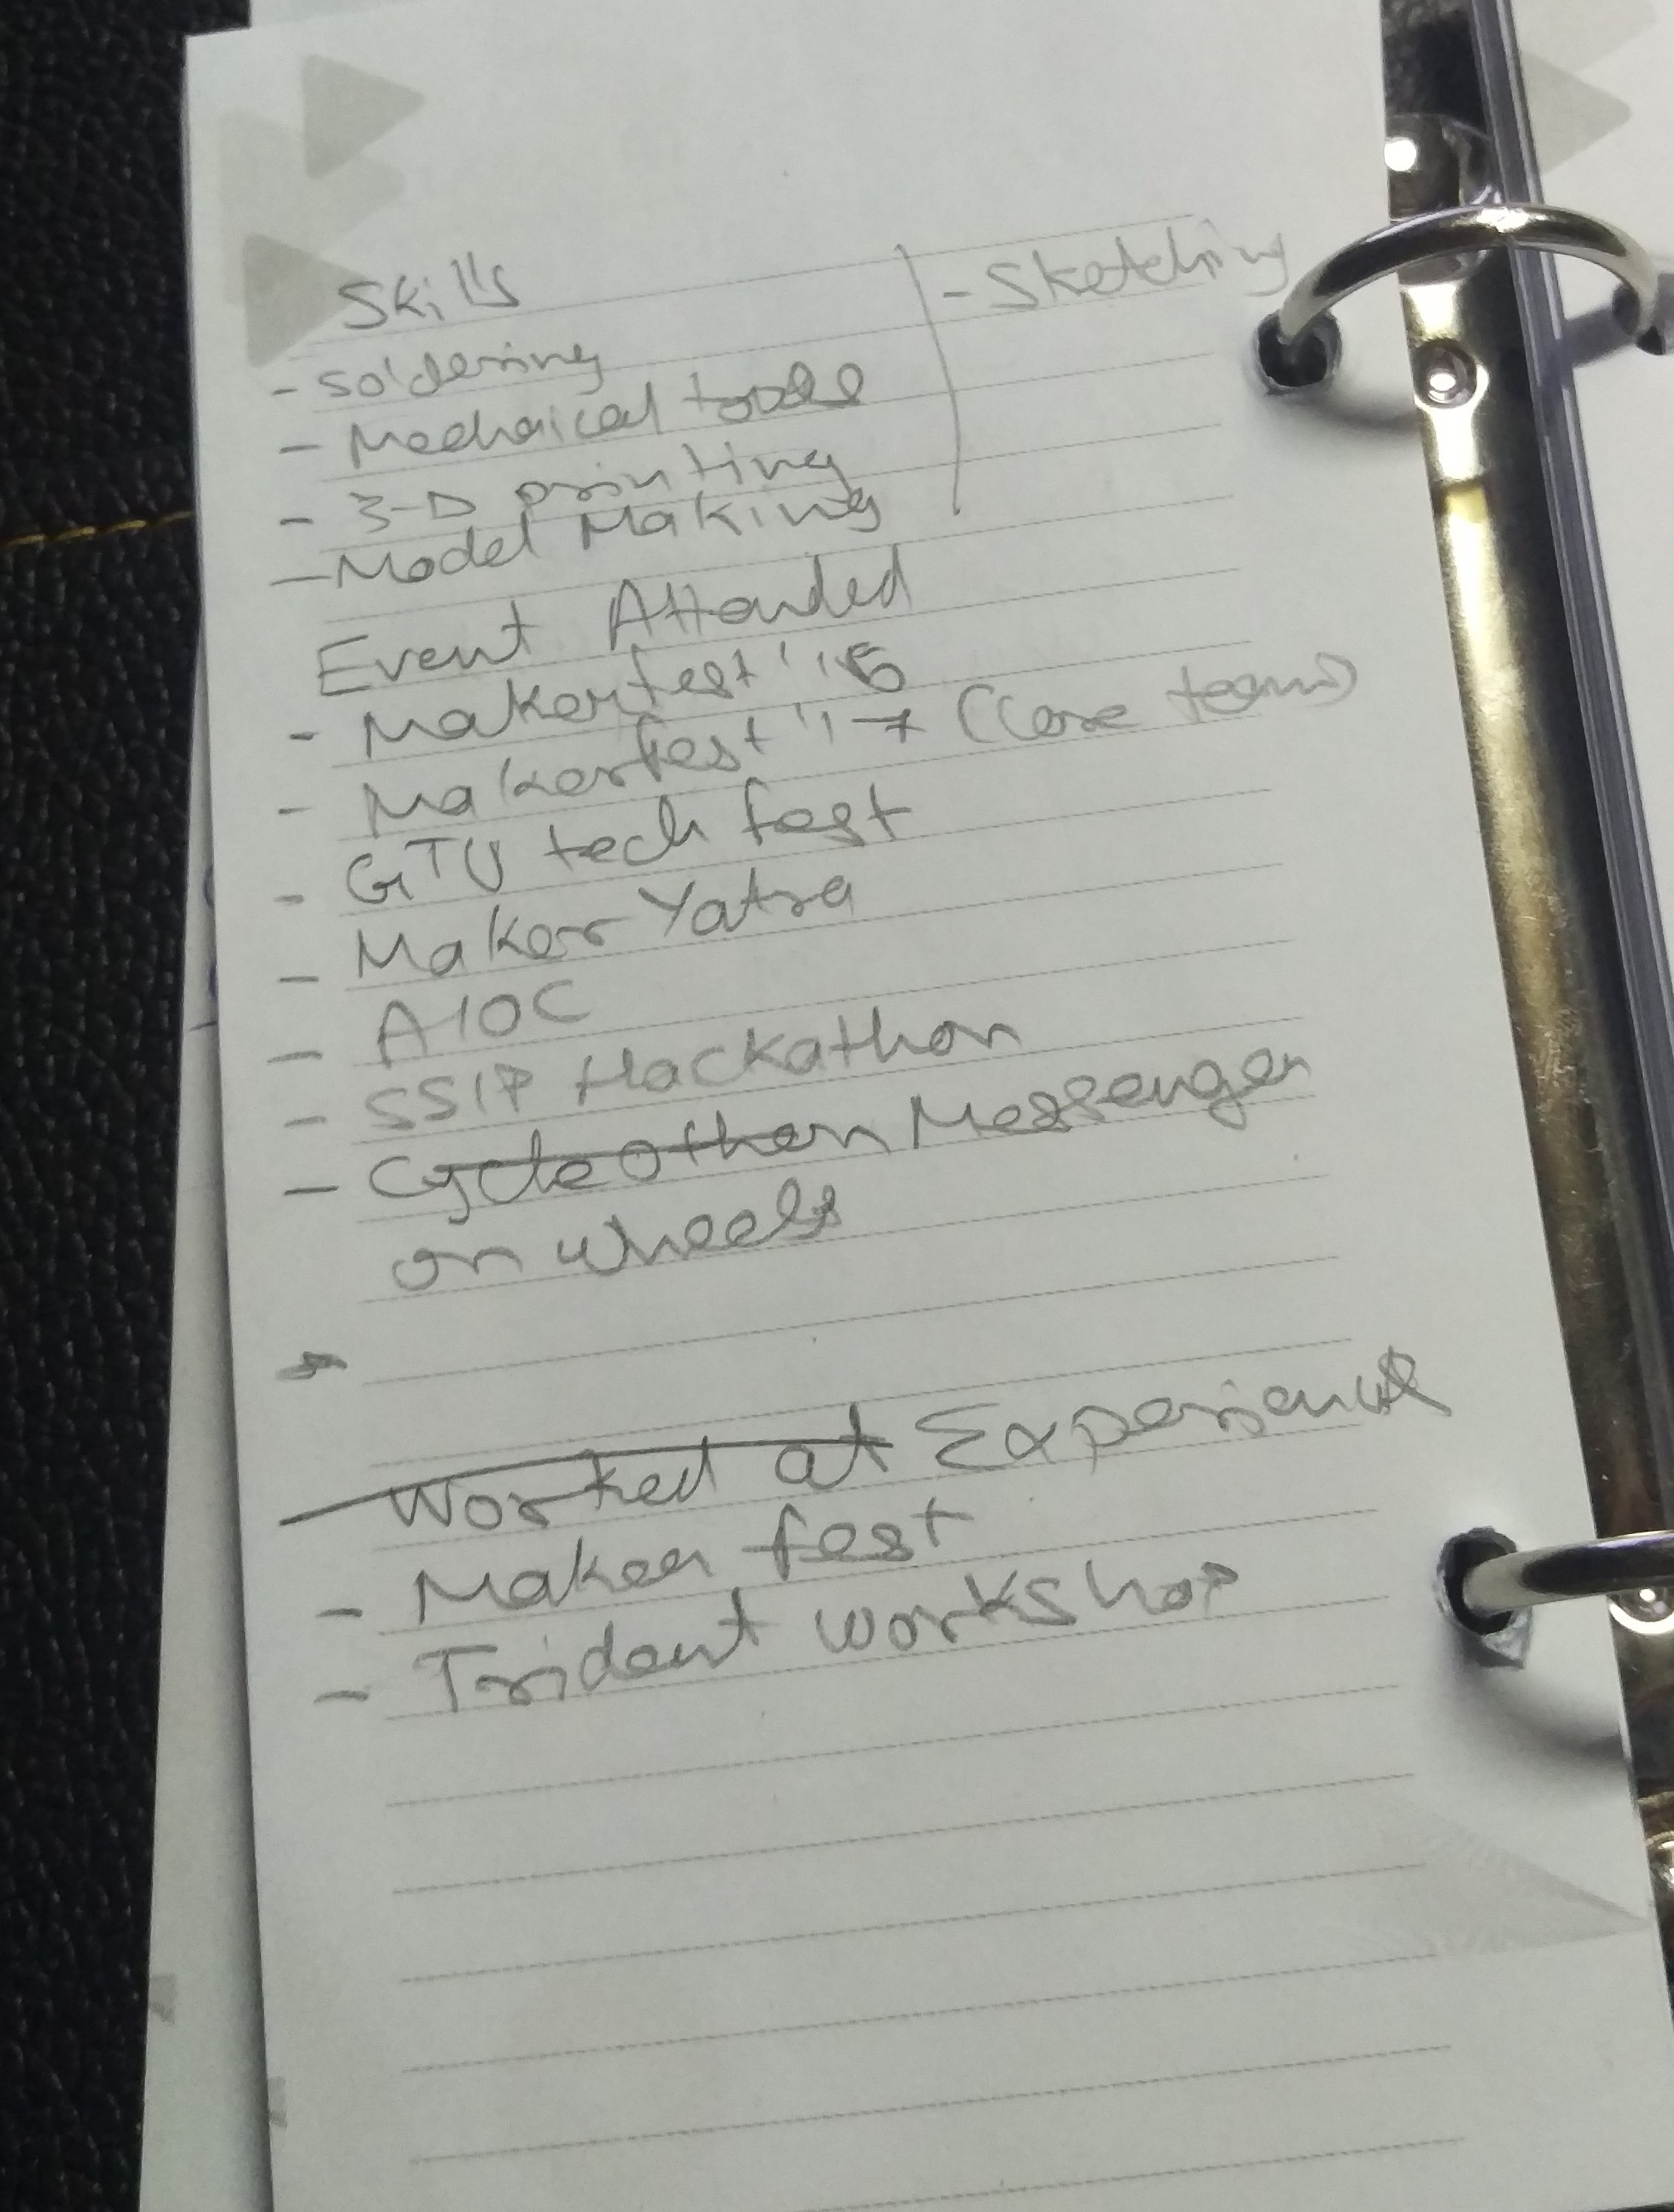 Skills
- Sketching
- Soldering
- Mechaical tools
- 3-D printing
- Model Making
Event Attended
- Makerfest '15
- Makerfest '17 (Core team)
- GTU tech fest
- Maker Yatra
- A10C
- SSIP Hackathon
- Cycle Othon Messenger
on wheels
- Worked at Experience
- Maker fest
- Trident workshop